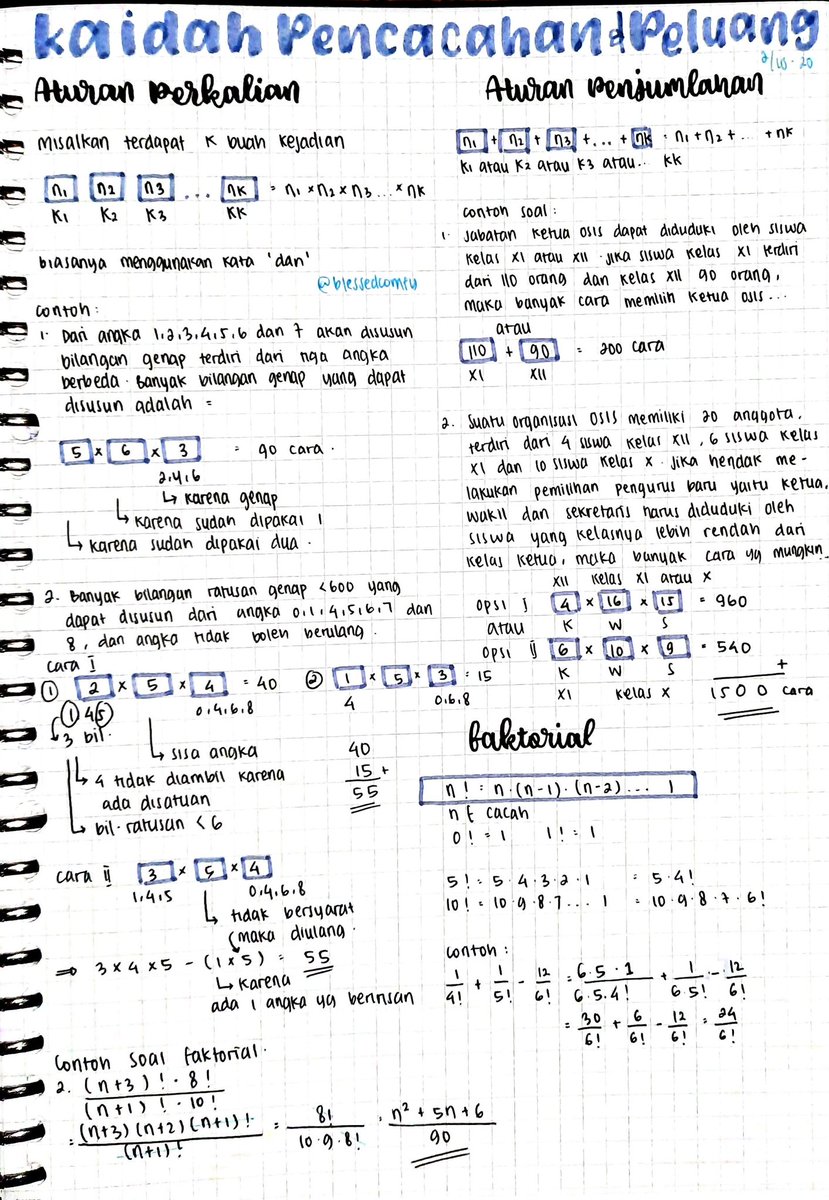 kaidah Pencacahan & Peluang
2/10-20
Aturan Perkalian
Misalkan terdapat K buah kejadian
n1 n2 n3 ... nk = n1 × n2 × n3 ... × nk
K1 K2 K3 KK
biasanya menggunakan kata 'dan'
@blessedcomfy
contoh :
1. Dari angka 1,2,3,4,5,6 dan 7 akan disusun
bilangan genap terdiri dari tiga angka
berbeda. Banyak bilangan genap yang dapat
disusun adalah =
5 × 6 × 3 = 90 cara.
2,4,6
↳ karena genap
↳ karena sudah dipakai 1
↳ karena sudah dipakai dua.
2. Banyak bilangan ratusan genap <600 yang
dapat disusun dari angka 0,1,4,5,6,7 dan
8, dan angka tidak boleh berulang.
cara I
① 2 × 5 × 4 = 40
0,4,6,8
1 4 5
↳ 3 bil.
↳ sisa angka
↳ 4 tidak diambil karena
ada disatuan
↳ bil. ratusan < 6
② 1 × 5 × 3 = 15
4 0,6,8
40
15 +
55
cara II 3 × 5 × 4
1,4,5 0,4,6,8
↳ tidak bersyarat
(maka diulang.
⇒ 3 × 4 × 5 - (1 × 5) = 55
↳ karena
ada 1 angka yg beririsan
Contoh soal faktorial.
2. (n+3)! . 8!
(n+1)! . 10!
= (n+3)(n+2)(n+1)! = 8! = n² + 5n + 6
(n+1)! 10.9.8! 90
Aturan Penjumlahan
n1 + n2 + n3 + ... + nk = n1 + n2 + ... + nk
K1 atau K2 atau K3 atau.. KK
contoh soal :
1. Jabatan ketua OSIS dapat diduduki oleh siswa
kelas XI atau XII. Jika siswa kelas XI terdiri
dari 110 orang dan kelas XII 90 orang,
maka banyak cara memilih ketua osis...
atau
110 + 90 = 200 cara
XI XII
2. Suatu organisasi OSIS memiliki 20 anggota,
terdiri dari 4 siswa kelas XII, 6 siswa kelas
XI dan 10 siswa kelas X. Jika hendak me-
lakukan pemilihan pengurus baru yaitu ketua,
wakil dan sekretaris harus diduduki oleh
siswa yang kelasnya lebih rendah dari
kelas ketua, maka banyak cara yg mungkin
XII kelas XI atau X
opsi I 4 × 16 × 15 = 960
atau K W S
opsi II 6 × 10 × 9 = 540
K W S +
XI kelas X 1500 cara
faktorial
n! = n.(n-1).(n-2)... 1
n ∈ cacah
0! = 1 1! = 1
5! = 5.4.3.2.1 = 5.4!
10! = 10.9.8.7... 1 = 10.9.8.7.6!
contoh :
1/4! + 1/5! - 12/6! = 6.5.1/6.5.4! + 1/6.5! - 12/6!
= 30/6! + 6/6! - 12/6! = 24/6!